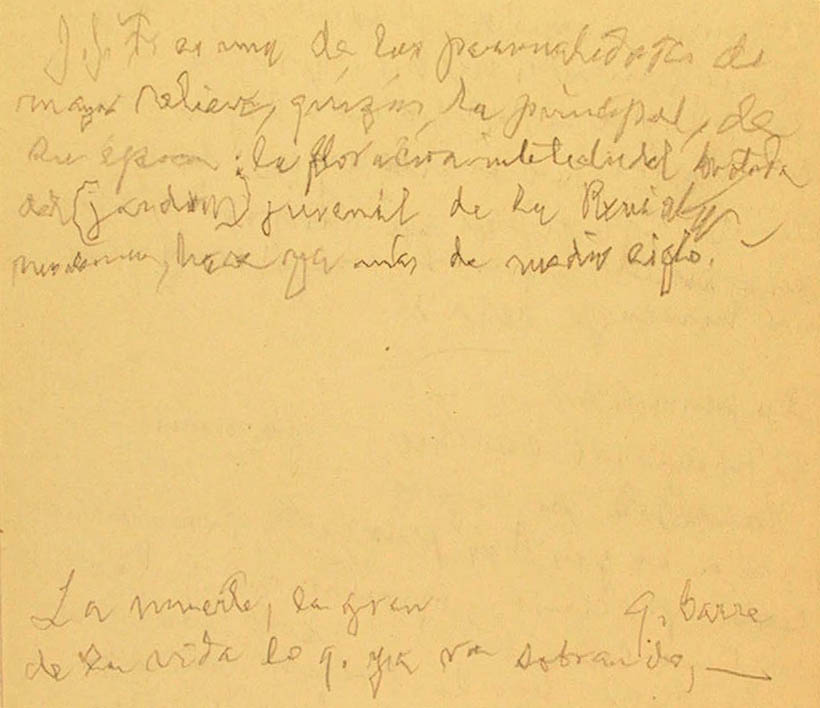 J. J. F. es una de las personalidades de
mayor relieve, quizás la principal, de
su época: la floración intelectual brotada
del {jardín} juvenil de la
hace ya más de medio siglo.
La muerte, la gran q. barre
de la vida lo q. ya va sobrando, —